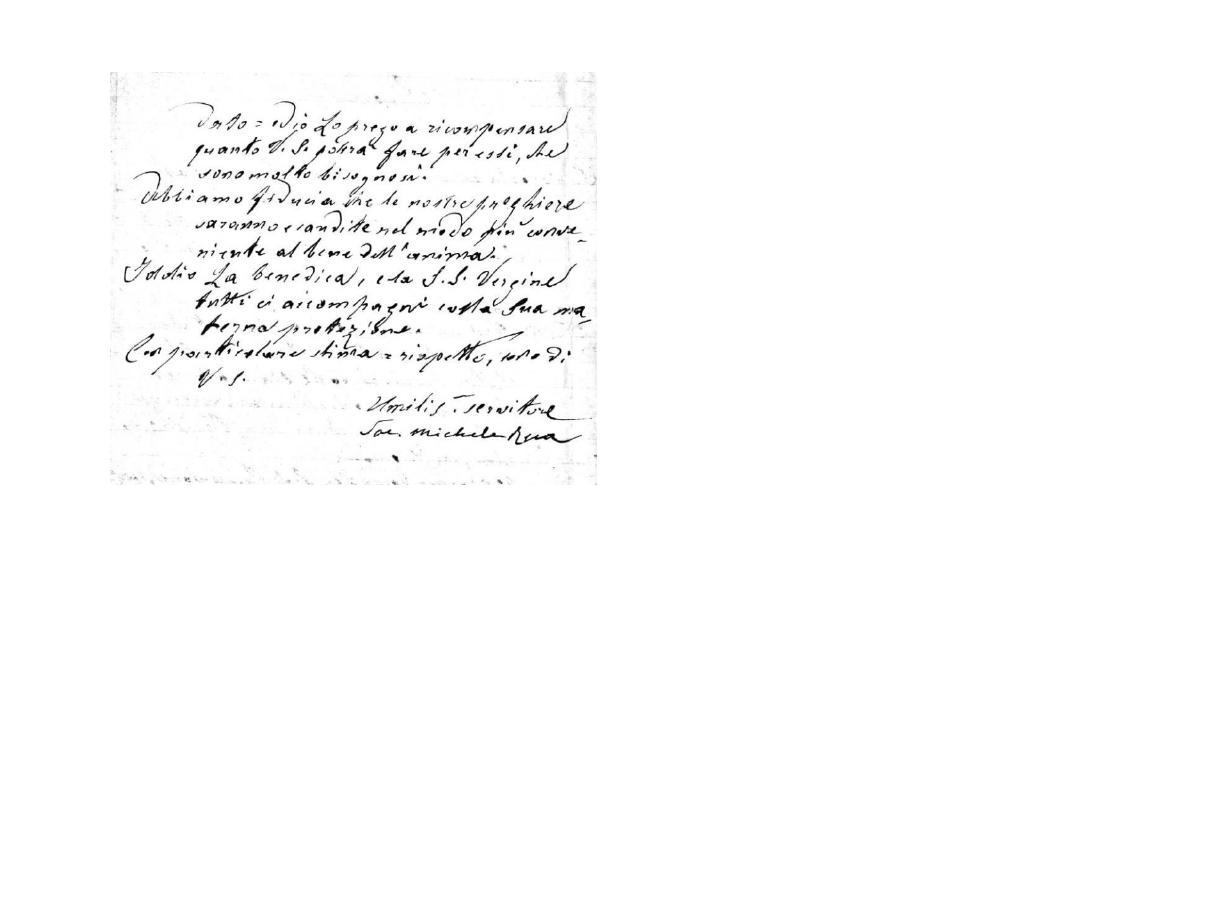 dato = ed io Lo prego a ricompensare
quanto V. S. potrà fare per essi, che
sono molto bisognosi.
Abbiamo fiducia che le nostre preghiere
saranno esaudite nel modo più conve-
niente al bene dell'anima.
Iddio La benedica, e la S.S. Vergine
tutti ci accompagni colla Sua ma-
terna protezione.
Con particolare stima = rispetto, sono di
V. S.
Umilis. servitore
Sac. Michele Rua